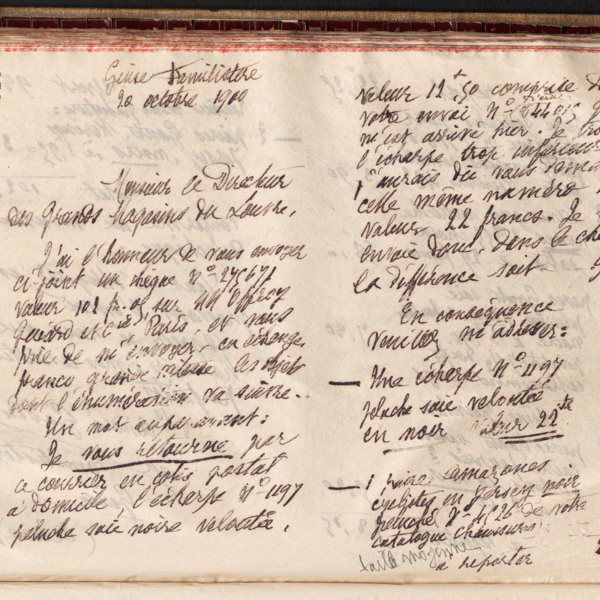 Guise Familistère
20 octobre 1900
Monsieur le Directeur
des Grands Magasins du Louvre,
J'ai l'honneur de vous envoyer
ci-joint un chèque N°
valeur 102 fr. 05 sur MM Offroy
Guiard et Cie, Paris, et vous
prie de m'envoyer en échange,
franco, grande vitesse les objets
dont l'énumération va suivre.
Un mot auparavant:
Je vous retourne par
ce courrier en colis postal
à domicile, l'écharpe N° 1197
peluche soie noire veloutée,
valeur 12f,50 comprise
votre envoi N°
m'est arrivé hier. Je
l'écharpe trop inférieure
J'aurais dû vous
cette même numéro
valeur 22 francs. Je
envoie donc, dans le
la différence soit
En conséquence
veuillez m'adresser:
— Une écharpe N° 1197
peluche soie veloutée
en noir valeur 22 fr
— 1 paire amazones
cyclistes en jersey noir
peluché N° de votre
catalogue Chaussures
taille moyenne
à reporter